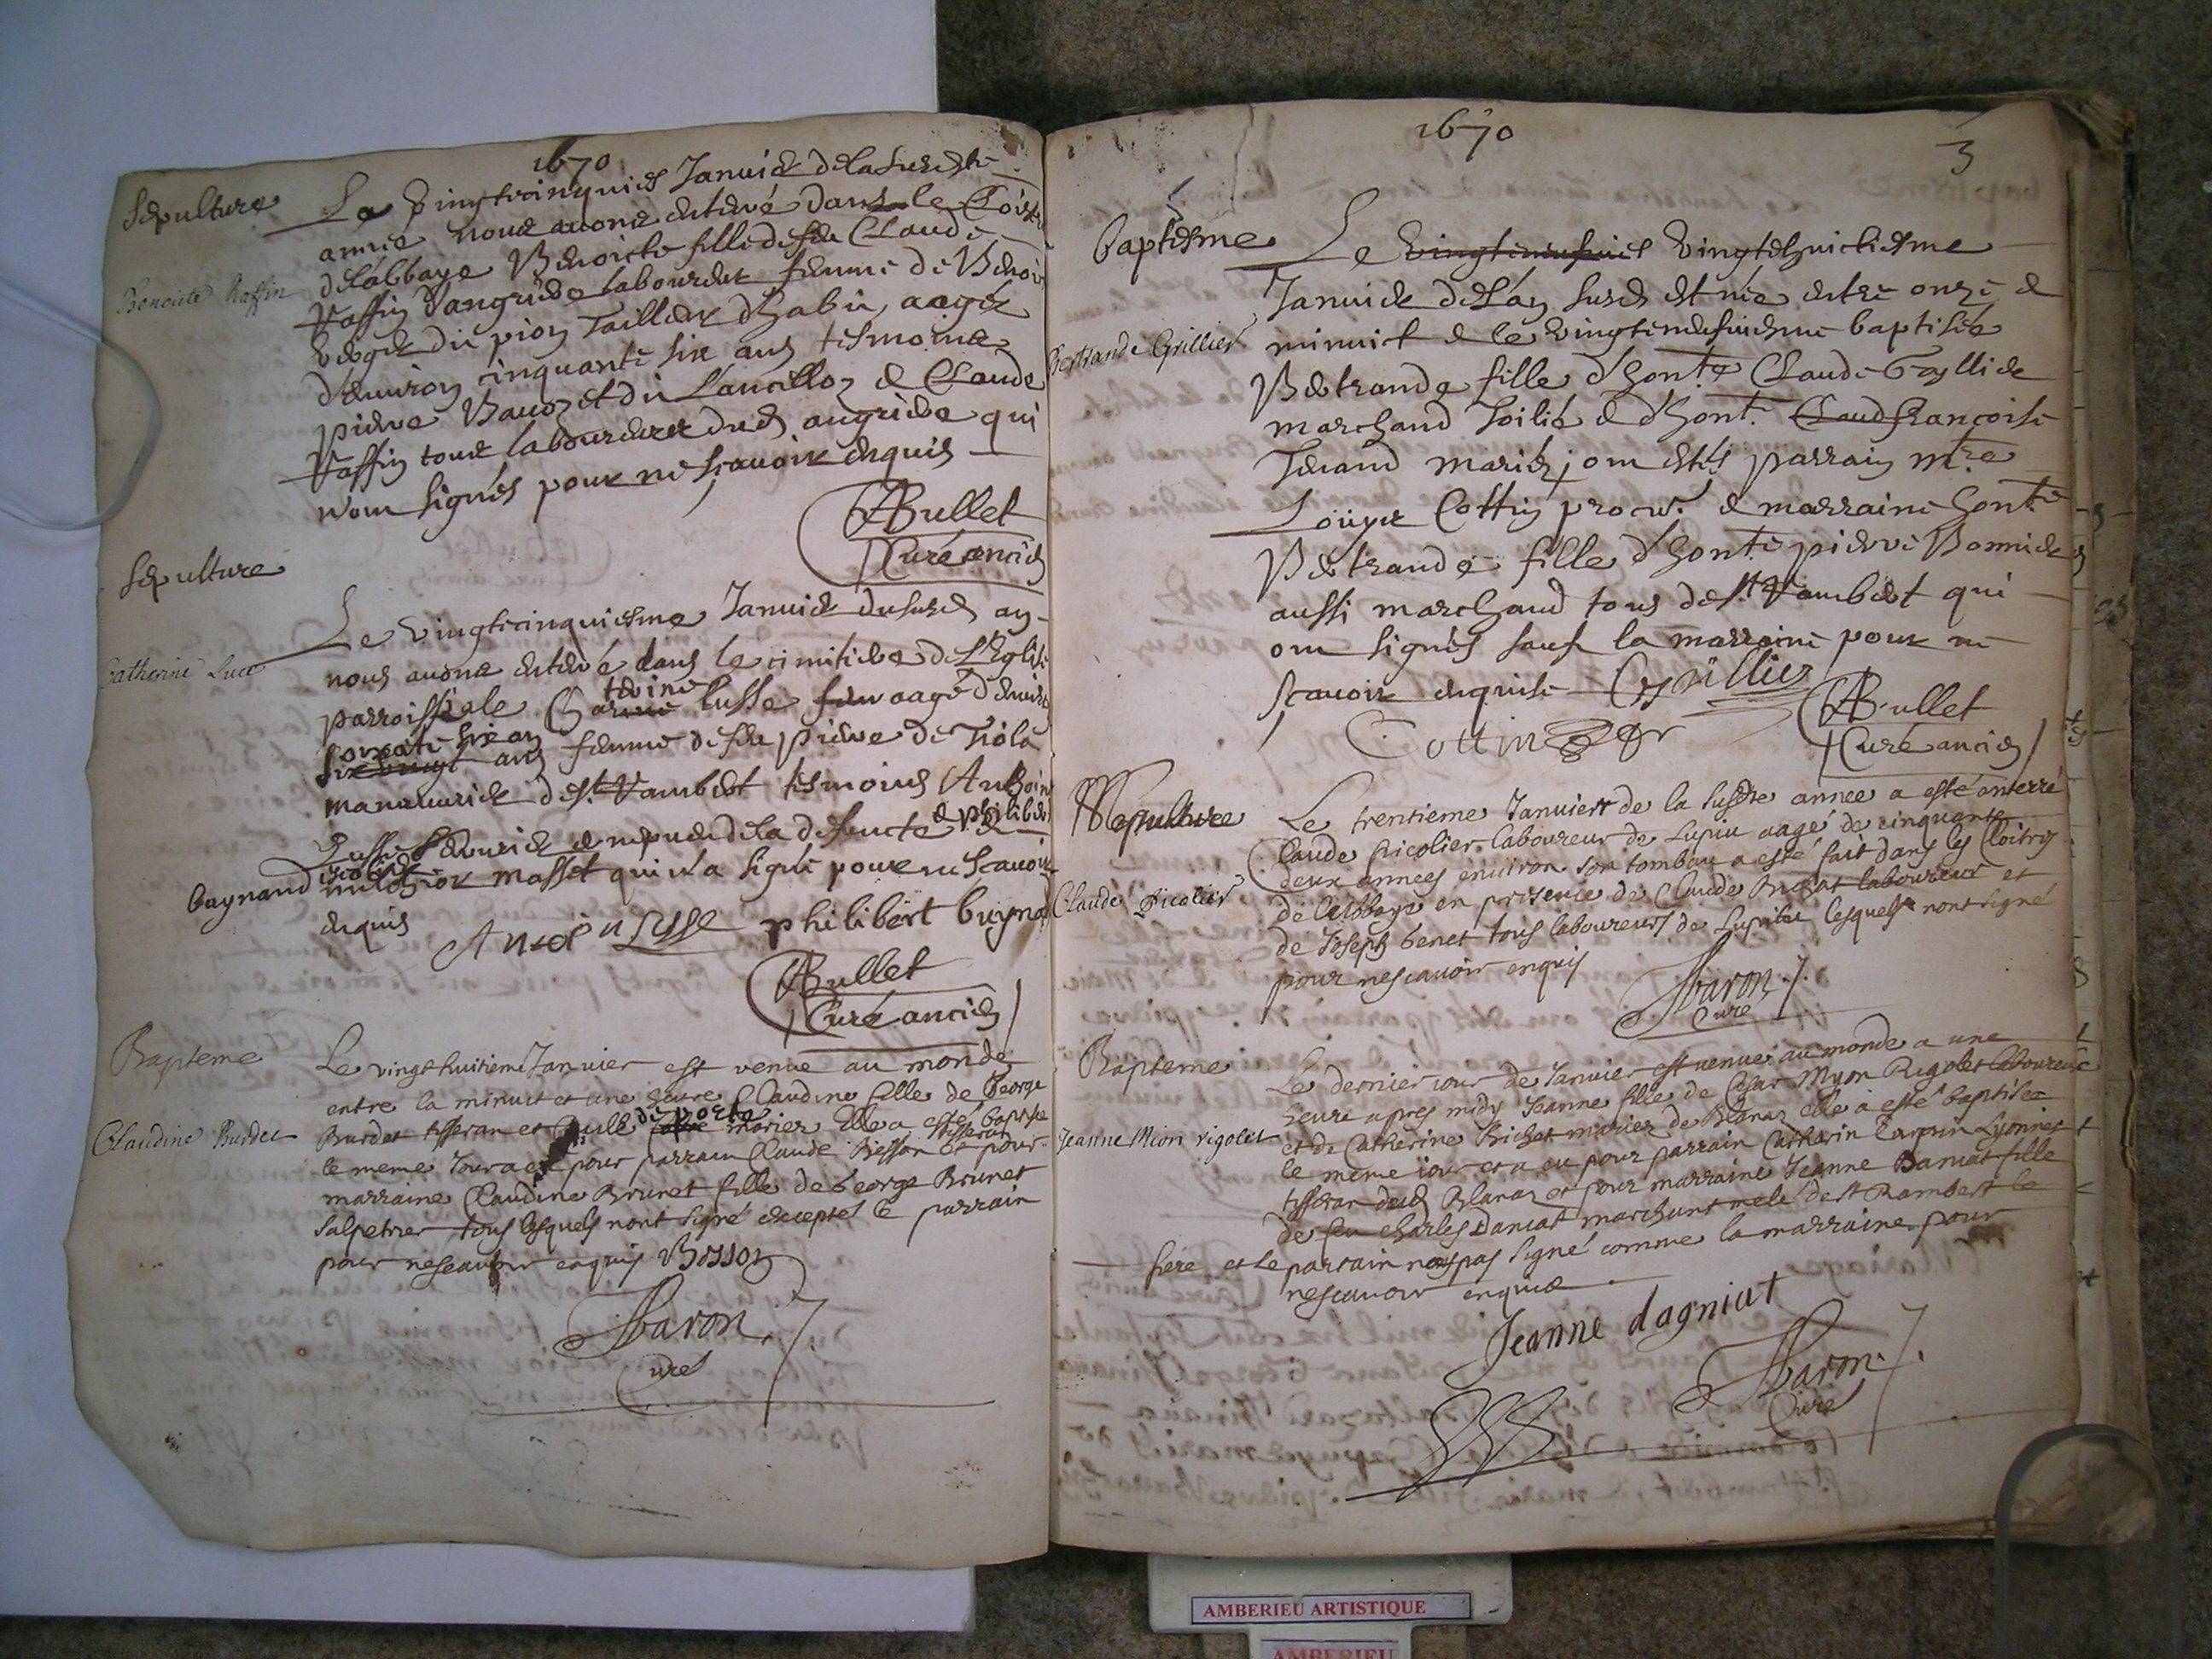 1670
Sepulture
Le vingtcinquies Januier de la susdite
année nous auons enterré dans le Cloistre
de labbaye Benoicte fille de feu Claude
Benoite Raffin
Raffin d'angrieres laboureur femme de Benoit
Verger du pion Tailleur d'habis, aagée
d'enuiron cinquante six ans tesmoins
pierre Bauoz et du Lancilloz & Claude
Raffin tous laboureurs dud angrieres qui
n'ont signés pour ne scauoir enquis
ABullet
Curé ancien
Sepulture
Le vingtcinquiesme Januier du susd an
nous auons enterré dans le cimitiere de l'Eglise
Catherine Luce
parroissiale Catterine lusse aagé d'enuiron
soixante six ans femme de feu pierre de Tiola
manouurier de st Rambert tesmoins Anthoine
Lusse & nepueu de la defuncte & philibert
buynand escolier & melchior masset qui n'a signé pour ne scauoir
enquis
Antoin Lusse philibert buynad
ABullet
Curé ancien
Bapteme
Le vingt huitieme Januier est venue au monde
entre la minuit et une heure Claudine fille de George
Claudine Burdet
Burdet tisseran et de porte mariez Elle a esté baptisé
le meme Jour a eu pour parrain Claude Bisson tisseran et pour
marraine Claudine Brunet fille de George Brunet
salpetrier tous lesquels nont signé excepté le parrain
pour nescauoir enquis Bosson
Baron
Curé
1670
3
baptesme
Le vingteneufuies vingtehuictiesme
Januier de l'an susd est née entre onze &
minuict & le vingtneufuiesme baptisée
Bertrande Grillier
Bertrande fille d'honte Claude Grillier
marchand Toilié & d'hont. Claud francoise
Teuand mariés, ont estés parrain mre
Louys Cottin procur. & marraine honte
Bertrande fille d'honte pierre Bonnier
aussi marchand tous de st Rambert qui
ont signés sauf la marraine pour ne
scauoir enquise Grillier
Cottin
ABullet
Curé ancien
Sepulture
Le trentieme Januier de la susdte année a esté enterré
Claude Picolier laboureur de Lupieu aagé de cinquante
deux années enuiron son tombau a esté fait dans les Cloitres
Claude Picolier
de l'abbaye en presence de Claude Brichat laboureur et
de Joseph benet tous laboureurs de Lupieu lesquels nont signé
pour nescauoir enquis
Baron
Curé
Bapteme
Le dernier iour de Januier est venue au monde a une
heure apres midy Jeanne fille de Cesar Myon Rigolet laboureur
Jeanne Mion rigolet
et de Catherine Bichet mariez de Blanaz elle a esté baptisée
le meme iour et a eu pour parrain Catherin Lyonnet
tisseran dud Blanaz et pour marraine Jeanne Daniat fille
de feu Charles Daniat marchant melé de st Rambert le
fiere et le parrain nont pas signé comme la marraine pour
nescauoir enquis
Jeanne dagniat
Baron
Curé
AMBERIEU ARTISTIQUE
AMBERIEU